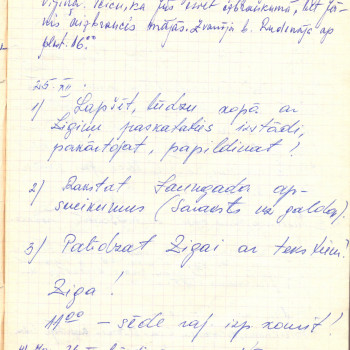 ka Jūs esat izbraukumā, bet Jā-
nis aizbraucis mājās. Zvanīja b. Rudenāja ap
plkst. 16.00
25. XII.
1) Lapšēt, lūdzu kopā ar
Zigim paskataties izstādi,
pakārtojat, papildinat!
2) Rakstat Jaungada ap-
sveikumus (Saraksts uz galda).
3) Palīdzat Zigai ar tekstiem!
Ziga!
11.00 – sēde raj. izp. komit!